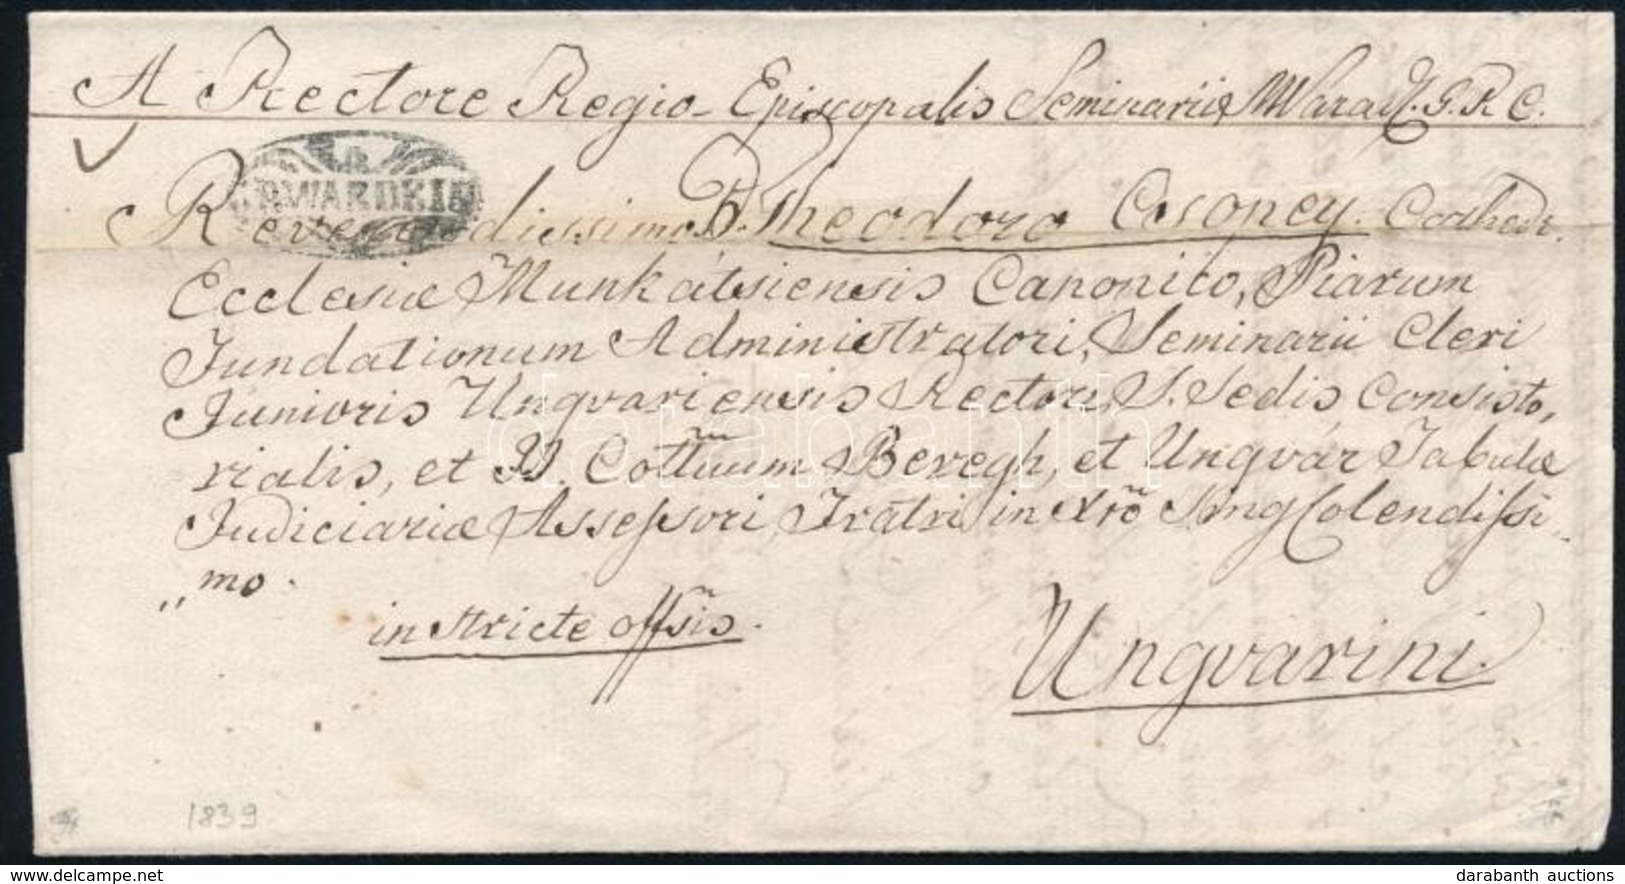 A Rectore Regio-Episcopalis Seminarii M Varad. G. R. C.
GRWARDEIN
Reverendissimo D. Theodoro Csopey. Cathedr.
Ecclesiæ Munkátsiensis Canonico, Piarum
Fundationum Administratori, Seminarii Cleri
Junioris Ungvariensis Rectori, S. Sedis Consisto,
rialis, et II. Cottuum Beregh, et Ungvár Tabulæ
Judiciariæ Assessori, Fratri in Xro Colendissi
„mo.
in stricte offsis.
Ungvarini
1839
darabanth
delcampe.net
darabanth auctions